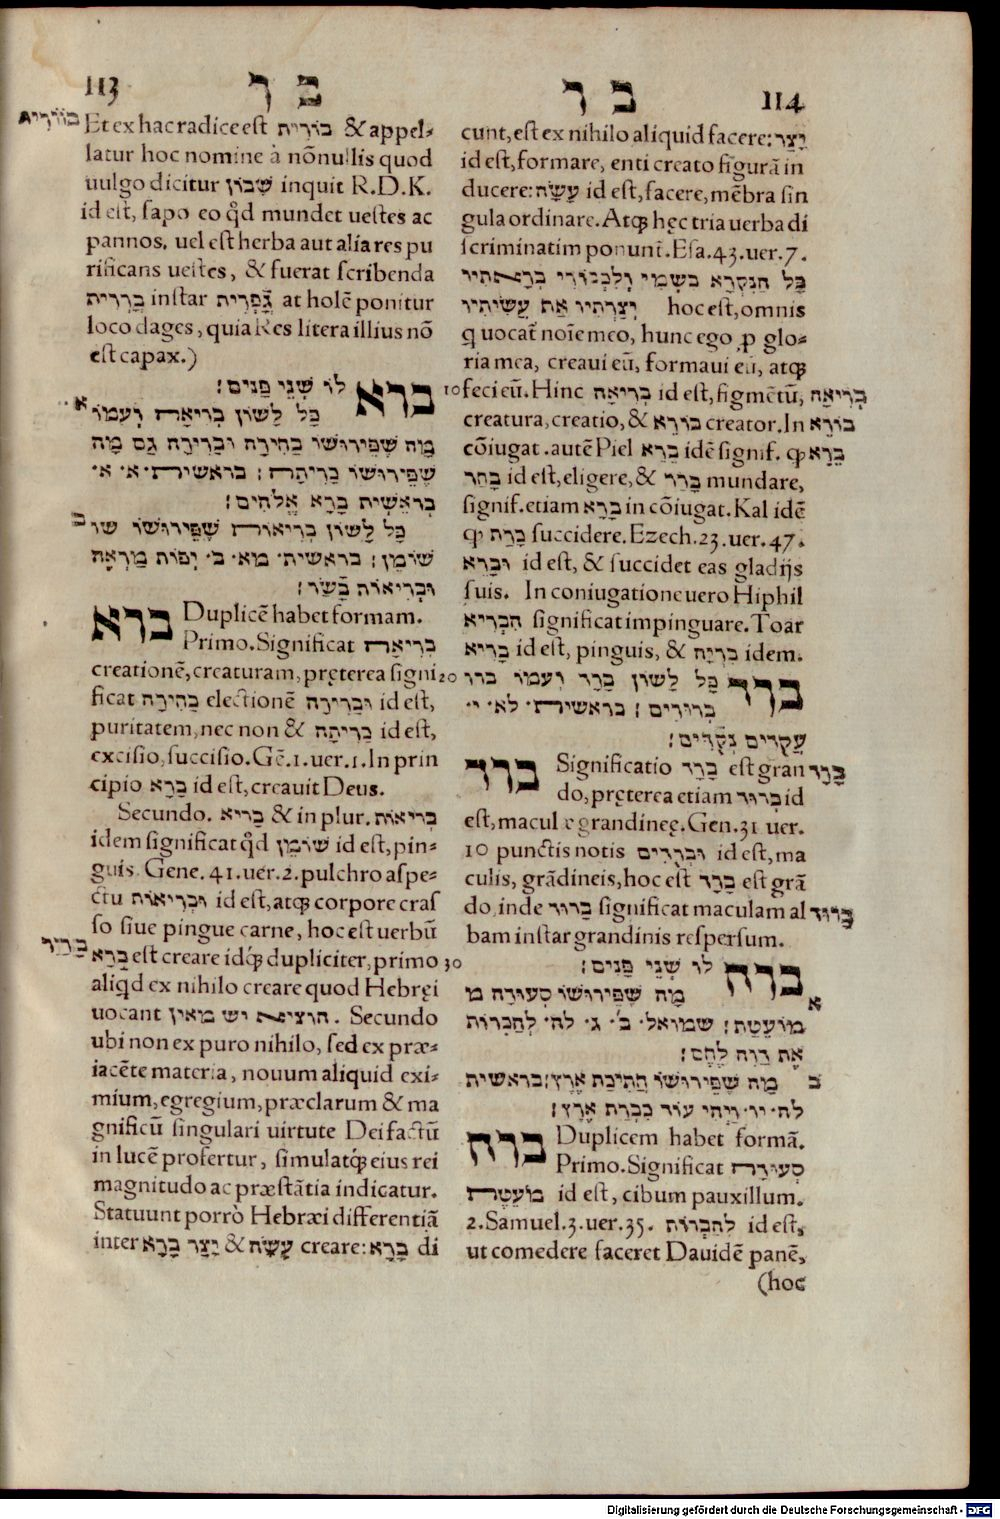 113
ב ר
ב ר
114
בוֹרִית
Et ex hac radice est בוֹרִית & appel-
latur hoc nomine à nõnullis quod
uulgo dicitur שָׁבוֹן inquit R.D.K.
id est, sapo eo qđ mundet uestes ac
pannos. uel est herba aut alia res pu
rificans uestes, & fuerat scribenda
בָּרִית instar גָּפְרִית at holē ponitur
loco dages, quia Res litera illius nõ
est capax.)
ברא לוֹ שְׁנֵי פָּנִים:
א כָּל לָשׁוֹן בְּרִיאָה וְעִמּוֹ
מָה שֶׁפֵּירוּשׁוֹ בְּחִירָה וּבְרִירָה גַּם מָה
שֶׁפֵּירוּשׁוֹ כְּרִיתָה: בראשית א א
בְּרֵאשִׁית בָּרָא אֱלֹהִים:
ב כָּל לָשׁוֹן בְּרִיאוּת שֶׁפֵּירוּשׁוֹ שו
שׁוֹמֶן: בראשית מא ב יְפוֹת מַרְאֶה
וּבְרִיאוֹת בָּשָׂר:
ברא Duplicē habet formam.
Primo. Significat בְּרִיאָה
creationē, creaturam, pręterea signi
ficat בְּחִירָה וּבְרִירָה electionē id est,
puritatem, nec non & כְּרִיתָה id est,
excisio, succisio. Gē. 1. uer. 1. In prin
cipio בָּרָא id est, creauit Deus.
Secundo. בָּרִיא & in plur. בְּרִיאוֹת
idem significat qđ שׁוֹמֶן id est, pin-
guis. Gene. 41. uer. 2. pulchro aspe-
ctu וּבְרִיאוֹת id est, atq; corpore cras
so siue pingue carne, hoc est uerbū
בָּרָא est creare idq; dupliciter, primo
aliqd ex nihilo creare quod Hebręi
uocant הוציא יש מאין. Secundo
ubi non ex puro nihilo, sed ex præ-
iacēte materia, nouum aliquid exi-
mium, egregium, præclarum & ma
gnificū singulari uirtute Dei factū
in lucē profertur, simulatq; eius rei
magnitudo ac præstãtia indicatur.
Statuunt porrò Hebræi differentiã
inter בָּרָא יָצַר & עָשָׂה creare: בָּרָא di
10
20
30
cunt, est ex nihilo aliquid facere: יָצַר
id est, formare, enti creato figurã in
ducere: עָשָׂה id est, facere, mēbra sin
gula ordinare. Atq; hęc tria uerba di
scriminatim ponunt. Esa. 43. uer. 7.
כָּל הַנִּקְרָא בִשְׁמִי וְלִכְבוֹדִי בְּרָאתִיו
יְצַרְתִּיו אַף עֲשִׂיתִיו hoc est, omnis
q uocat noīe meo, hunc ego ꝓ glo-
ria mea, creaui eū, formaui eū, atq;
feci eū. Hinc בְּרִיאָה id est, figmētū, בְּרִיאָה
creatura, creatio, & בּוֹרֵא creator. In בּוֹרֵא
cõiugat. autē Piel בֵּרֵא idē signif. qƥ בֵּרָא
בָּחַר id est, eligere, & בָּרַר mundare,
signif. etiam בָּרָא in cõiugat. Kal idē
qƥ כָּרַת succidere. Ezech. 23. uer. 47.
וּבָרֵא id est, & succidet eas gladijs
suis. In coniugatione uero Hiphil
הִבְרִיא significat impinguare. Toar
בָּרִיא id est, pinguis, & בְּרִיָּה idem.
ברד כָּל לָשׁוֹן בָּרָד וְעִמּוֹ ברו
בְּרוּדִים: בראשית לא י
עֲקֻדִּים נְקֻדִּים:
ברד Significatio בָּרָד est gran בָּרָד
do, pręterea etiam בָּרוּד id
est, maculę grandineę. Gen. 31 uer.
10 punctis notis וּבְרֻדִּים id est, ma
culis, grãdineis, hoc est בָּרָד est grã
do, inde בָּרוּד significat maculam al בָּרוּד
bam instar grandinis respersum.
ברה לוֹ שְׁנֵי פָּנִים:
א מָה שֶׁפֵּירוּשׁוֹ סְעוּדָה מ
מוֹעֶטֶת: שמואל ב ג לה לְהַבְרוֹת
אֶת דָּוִד לֶחֶם:
ב מָה שֶׁפֵּירוּשׁוֹ חֲתִיכַת אֶרֶץ: בראשית
לה יו וַיְהִי עוֹד כִּבְרַת אֶרֶץ:
ברה Duplicem habet formã.
Primo. Significat סְעוּדָה
מוֹעֶטֶת id est, cibum pauxillum.
2. Samuel. 3. uer. 35. לְהַבְרוֹת id est,
ut comedere faceret Dauidē panē,
(hoc
Digitalisierung gefördert durch die Deutsche Forschungsgemeinschaft - DFG